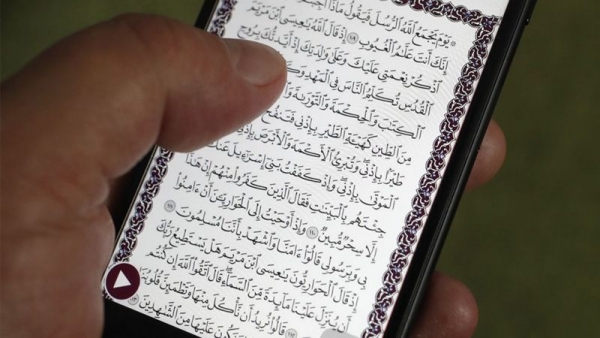 ۞ يَوْمَ يَجْمَعُ ٱللَّهُ ٱلرُّسُلَ فَيَقُولُ مَاذَآ
إِنَّكَ أَنتَ عَلَّٰمُ ٱلْغُيُوبِ ١٠٩ إِذْ قَالَ ٱللَّهُ يَٰعِيسَى ٱبْنَ مَرْيَمَ
ٱذْكُرْ نِعْمَتِى عَلَيْكَ وَعَلَىٰ وَٰلِدَتِكَ إِذْ أَيَّدتُّكَ بِرُوحِ
ٱلْقُدُسِ تُكَلِّمُ ٱلنَّاسَ فِى ٱلْمَهْدِ
ٱلْكِتَٰبَ وَٱلْحِكْمَةَ وَٱلتَّوْرَىٰةَ
مِنَ ٱلطِّينِ كَهَيْـَٔةِ ٱلطَّيْرِ بِإِذْنِى فَتَنفُخُ
طَيْرًۢا بِإِذْنِى وَتُبْرِئُ ٱلْأَكْمَهَ وَٱلْأَبْرَصَ بِإِذْنِى
ٱلْمَوْتَىٰ بِإِذْنِى وَإِذْ كَفَفْتُ بَنِىٓ إِسْرَٰٓءِيلَ عَنكَ
جِئْتَهُم بِٱلْبَيِّنَٰتِ فَقَالَ ٱلَّذِينَ كَفَرُوا۟ مِنْهُمْ إِنْ هَٰذَآ
إِلَّا سِحْرٌ مُّبِينٌ ١١٠ وَإِذْ أَوْحَيْتُ إِلَى ٱلْحَوَارِيِّۦنَ أَنْ ءَامِنُوا۟
بِى وَبِرَسُولِى قَالُوٓا۟ ءَامَنَّا وَٱشْهَدْ بِأَنَّنَا مُسْلِمُونَ ١١١
إِذْ قَالَ ٱلْحَوَارِيُّونَ يَٰعِيسَى ٱبْنَ مَرْيَمَ هَلْ يَسْتَطِيعُ رَبُّكَ
أَن يُنَزِّلَ عَلَيْنَا مَآئِدَةً مِّنَ ٱلسَّمَآءِ قَالَ ٱتَّقُوا۟ ٱللَّهَ إِن كُنتُم
قَالُوا۟ نُرِيدُ أَن نَّأْكُلَ مِنْهَا وَتَطْمَئِنَّ قُلُوبُنَا
وَنَكُونَ عَلَيْهَا مِنَ ٱلشَّٰهِدِينَ